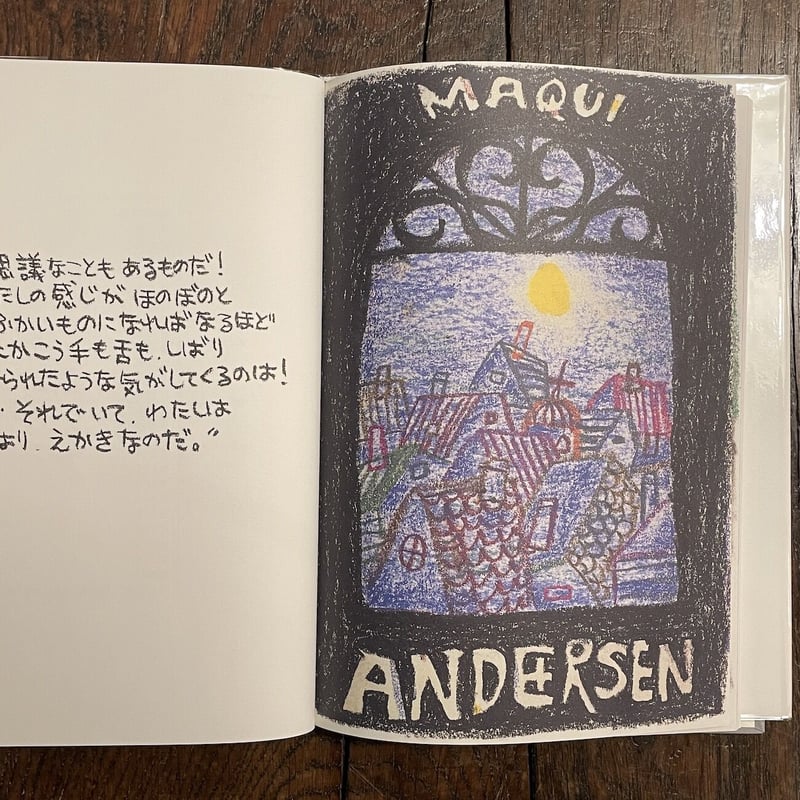 思議なことも あるものだ!
たしの感じが ほのぼのと
ふかいものになればなるほど
たかこう手も舌も、しばり
けられたような気がしてくるのは!
・それでいて、わたしは
ぱり、えかきなのだ。”
MAQUI
ANDERSEN